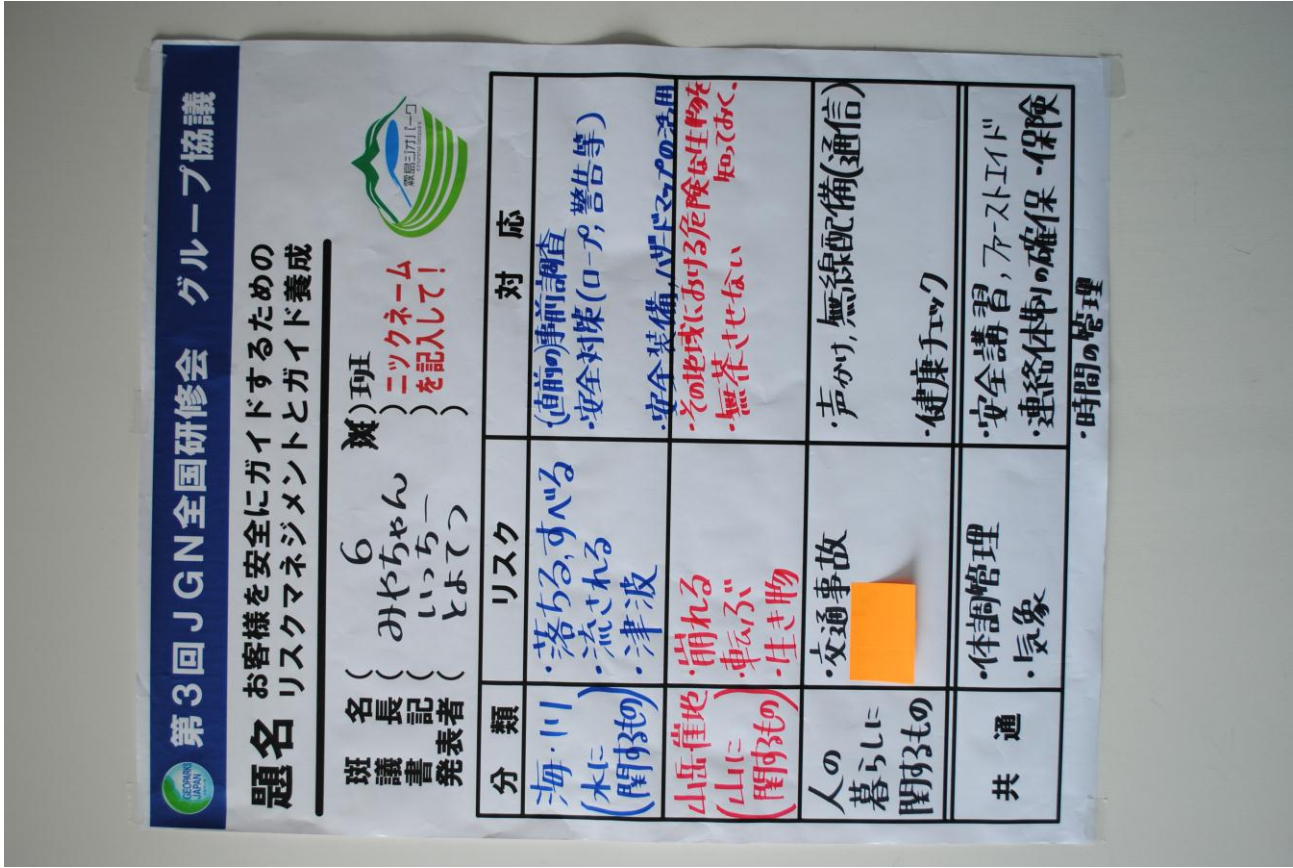 第3回JGN全国研修会 グループ協議
GEOPARKS
JAPAN
題名 お客様を安全にガイドするための
リスクマネジメントとガイド養成
班名 ( 6 ) 班
議長 ( みやちゃん ) ニックネーム
書記 ( いっちー ) を記入して!
発表者 ( とよてつ )
霧島ジオパーク
分類 リスク 対応
海・川
(水に
関するもの)
・落ちる,すべる
・流される
・津波
(直前の)事前調査
・安全対策(ロープ,警告等)
・安全装備,ハザードマップの活用
山岳崖地
(山に
関するもの)
・崩れる
・転ぶ
・生き物
・その地域における危険な生物を
知っておく。
・無茶させない
人の
暮らしに
関するもの
・交通事故
・声かけ,無線配備(通信)
・健康チェック
共通
・体調管理
・気象
・安全講習,ファーストエイド
・連絡体制の確保・保険
・時間の管理